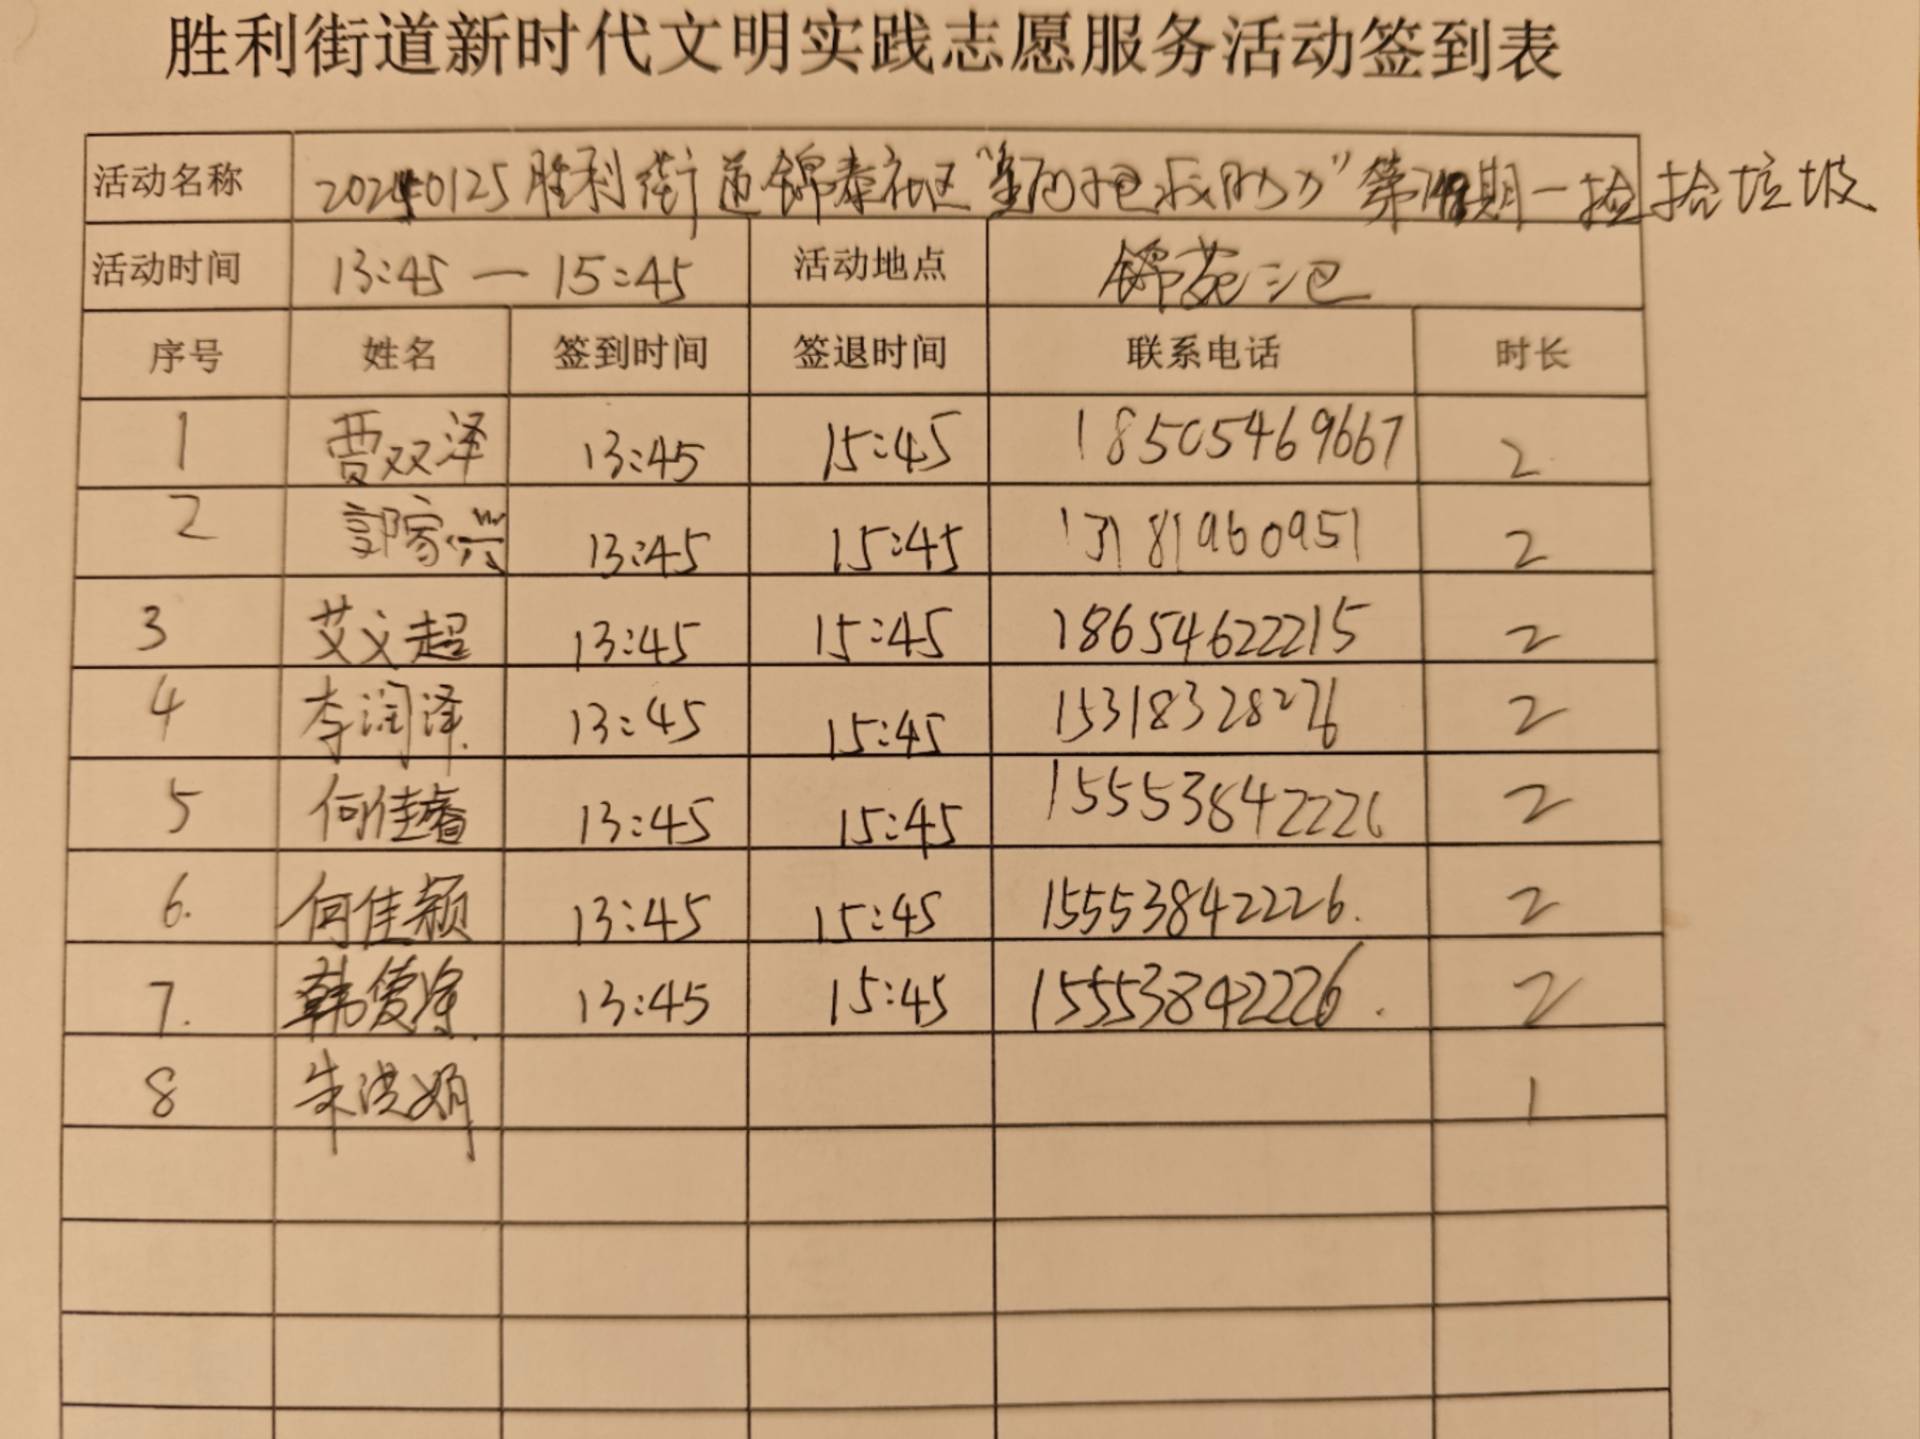 胜利街道新时代文明实践志愿服务活动签到表
活动名称 20240125胜利街道锦泰社区 第 期一捡拾垃圾
活动时间 13:45 — 15:45 活动地点 锦苑三区
序号 姓名 签到时间 签退时间 联系电话 时长
1 贾双泽 13:45 15:45 18505469667 2
2 郭家兴 13:45 15:45 13181960951 2
3 艾文超 13:45 15:45 18654622215 2
4 李润泽 13:45 15:45 15318328276 2
5 何佳睿 13:45 15:45 15553842226 2
6. 何佳颖 13:45 15:45 15553842226. 2
7. 韩 13:45 15:45 15553842226. 2
8 朱洪娟 1